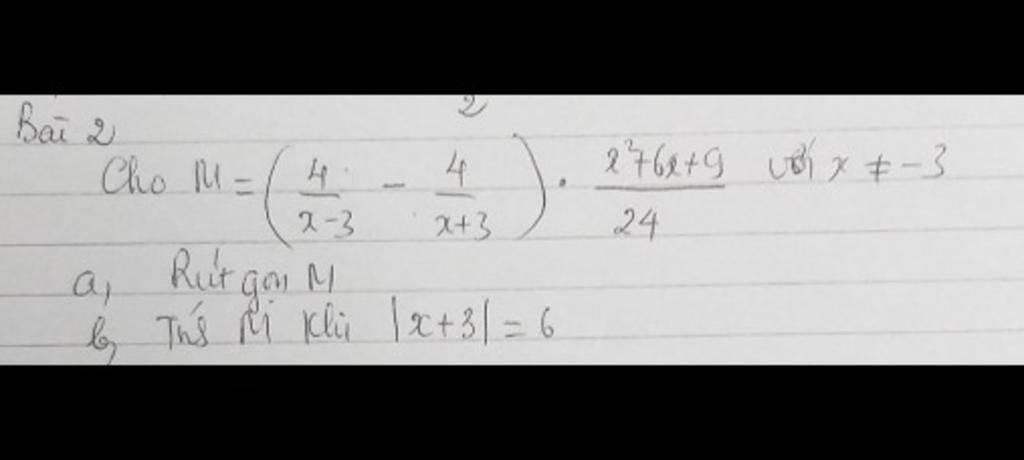 Bài 2
Cho M = (4/(x-3) - 4/(x+3)) . (x²+6x+9)/24 với x ≠ -3
a, Rút gọn M
b, Tnś M khi |x+3| = 6